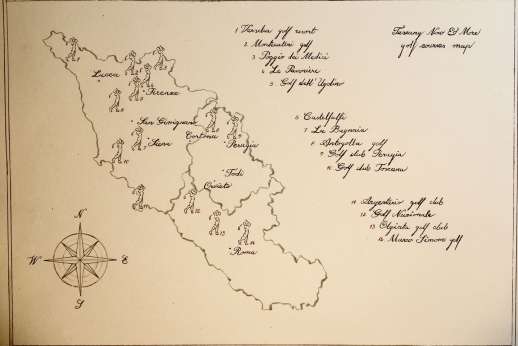 1 Versilia golf resort
2 Montecatini golf
3 Poggio dei Medici
4 Le Pavoniere
5 Golf dell'Ugolino
Tuscany Now & More
golf courses map
6 Castelfalfi
7 La Bagnaia
8 Antognolla golf
9 Golf club Perugia
10 Golf club Toscana
11 Argentario golf club
12 Golf Nazionale
13 Olgiata golf club
14 Marco Simone golf
Lucca
Firenze
San Gimignano
Siena
Cortona
Perugia
Todi
Orvieto
Roma
N
W
E
S